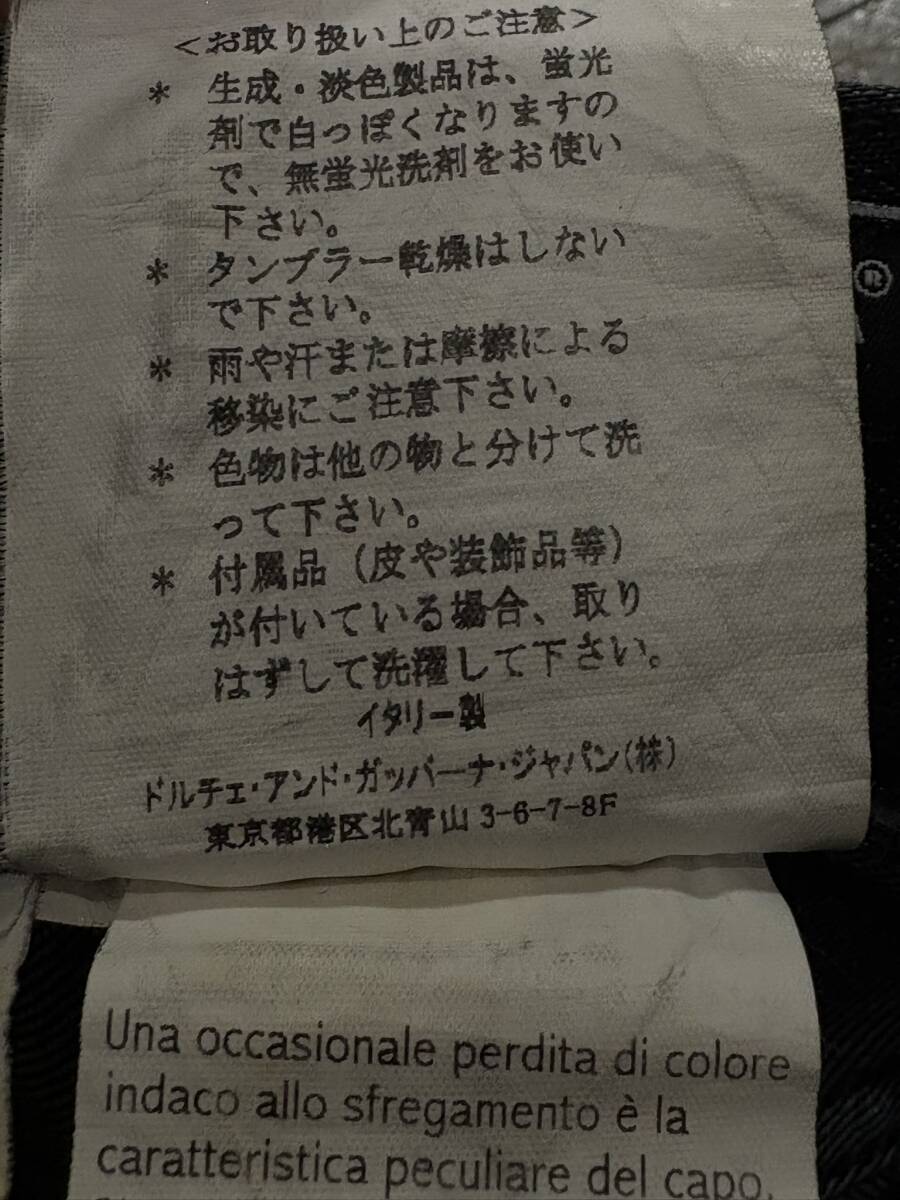 <お取り扱い上のご注意>
* 生成・淡色製品は、蛍光
剤で白っぽくなりますの
で、無蛍光洗剤をお使い
下さい。
* タンブラー乾燥はしない
で下さい。
* 雨や汗または摩擦による
移染にご注意下さい。
* 色物は他の物と分けて洗
って下さい。
* 付属品（皮や装飾品等）
が付いている場合、取り
はずして洗濯して下さい。
イタリー製
ドルチェ・アンド・ガッバーナ・ジャパン(株)
東京都港区北青山3-6-7-8F
®
Una occasionale perdita di colore
indaco allo sfregamento è la
caratteristica peculiare del capo.